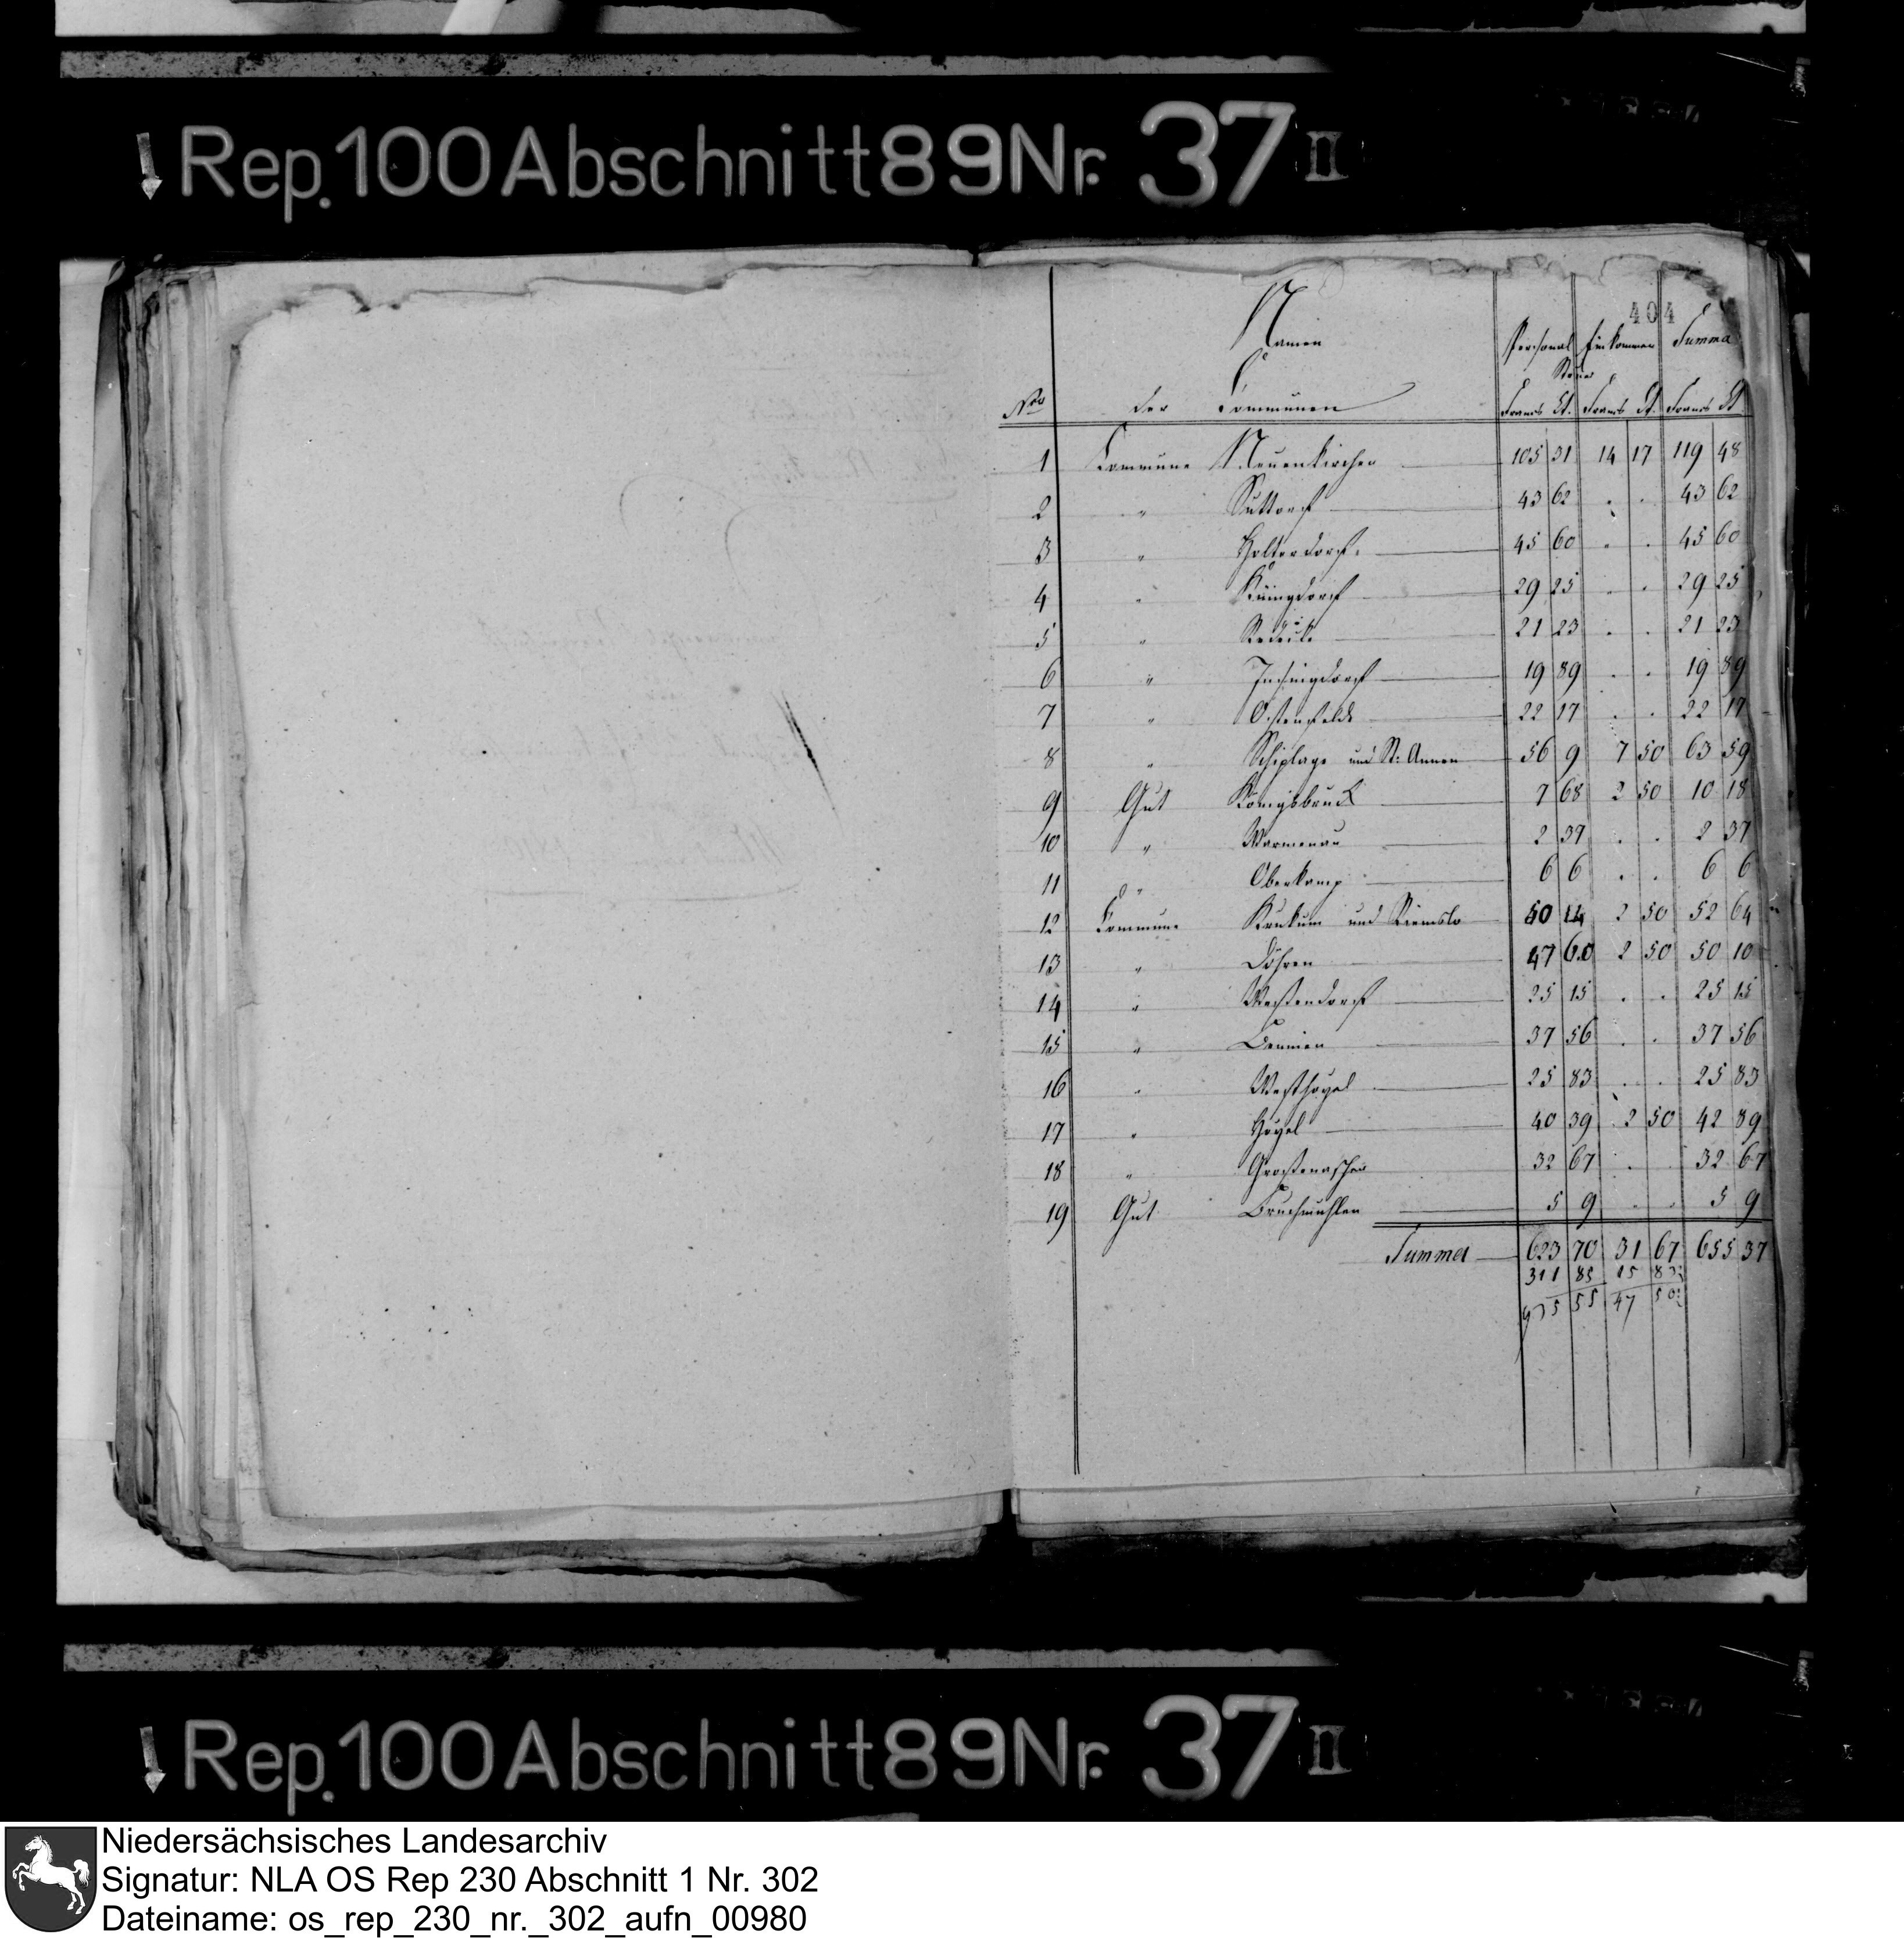 Rep. 100 Abschnitt 89 Nr. 37 II
404
Namen Personal Einkommen Summa
Steuer
Nro der Communen Francs Ct. Francs Ct. Francs Ct
1 Commune Neuenkirchen 105 31 14 17 119 48
2 " Suttorf 43 62 . . 43 62
3 " Holterdorf 45 60 . . 45 60
4 " Küingdorf 29 25 . . 29 25
5 " Redeike 21 23 . . 21 23
6 " Insingdorf 19 89 . . 19 89
7 " Ostenfelde 22 17 . . 22 17
8 " Schiplage und St: Annen 56 9 7 50 63 59
9 Gut Königsbruck 7 68 2 50 10 18
10 " Warmenau 2 37 . . 2 37
11 " Oberkamp 6 6 . . 6 6
12 Commune Krukum und Riemslo 50 14 2 50 52 64
13 " Döhren 47 60 2 50 50 10
14 " Westendorf 25 15 . . 25 15
15 " Bennien 37 56 . . 37 56
16 " Westhoyel 25 83 . . 25 83
17 " Hoyel 40 39 2 50 42 89
18 " Grostenaschen 32 67 . . 32 67
19 Gut Bruchmuhlen 5 9 . . 5 9
Summa 623 70 31 67 655 37
311 85 15 83
935 55 47 50
Rep. 100 Abschnitt 89 Nr. 37 II
Niedersächsisches Landesarchiv
Signatur: NLA OS Rep 230 Abschnitt 1 Nr. 302
Dateiname: os_rep_230_nr._302_aufn_00980